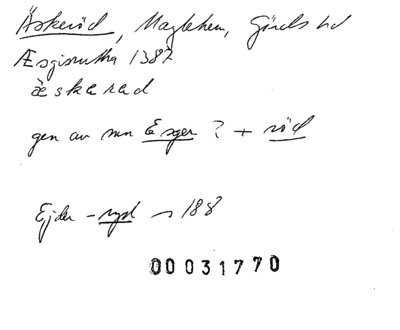 Äskeröd, Maglehem, Gärds hd
Æsgisrutha 1387
æskarad
gen av mn Esger ? + röd
Ejder - ryd → 188
00031770